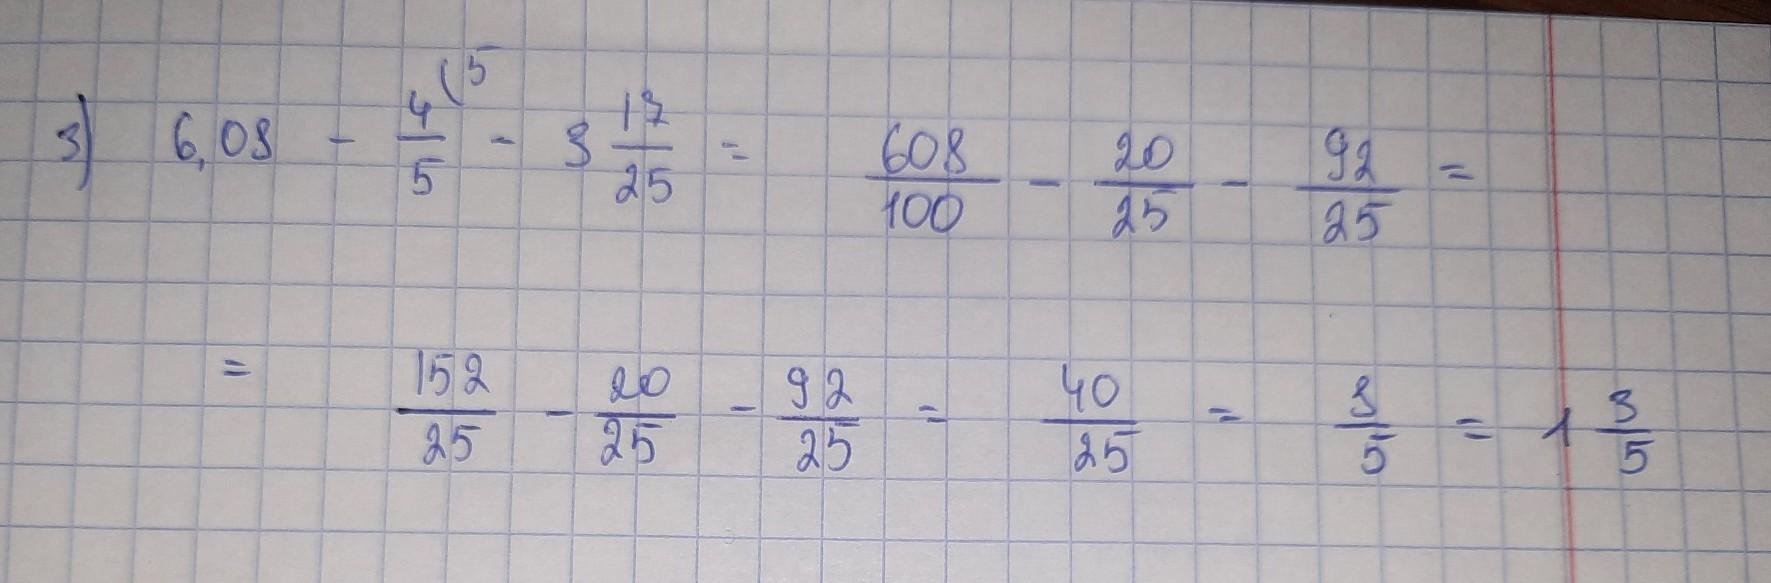 3) 6,08 - 4/5 (5 - 3 17/25 = 608/100 - 20/25 - 92/25 =
= 152/25 - 20/25 - 92/25 = 40/25 = 3/5 = 1 3/5